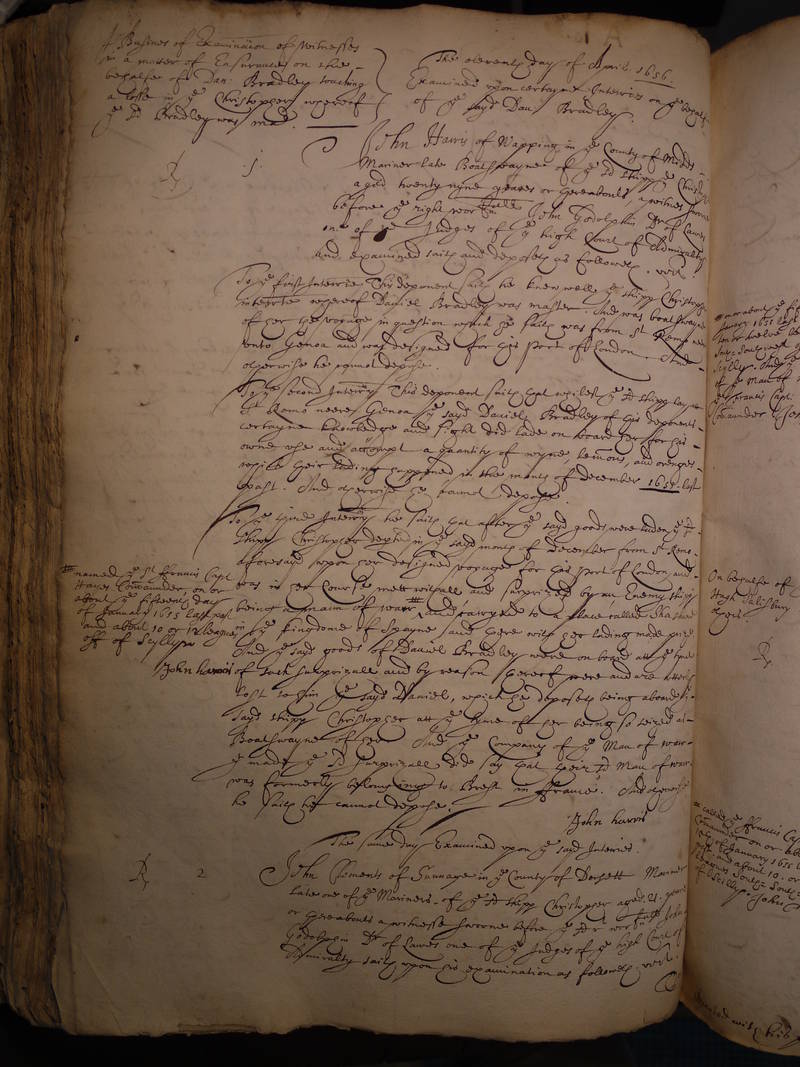 A Busines of Examinacion of witnesses
in a matter of Ensurance on the
behalfe of Dan: Bradley touching
a losse in ye Christopher whereof
ye sd Bradley was mr.
The eleventh day of Aprill 1656.
Examined upon certayne Interries on ye behalfe
of ye sayd Dan Bradley.
Rp 1.
John Harris of Wapping in ye County of Midds
Mariner late Boatswayne of ye sd shipp ye Christopher
aged twenty nyne yeares or thereabouts, a witnes sworne
before ye right worpfull John Godolphin Dr of Lawes
one of ye Judges of ye high Court of Admiralty
And examined saith and deposeth as followeth, vizt.
To ye first Interrie This deponent saith he knew well ye shipp Christopher
interrte whereof Daniel Bradley was master. And was boatswayne
of her ye voyage in question which he saith was from St Remo
unto Genoa and was designed for this port of London. And
otherwise he cannot depose.
To ye second Interry This deponent saith that whilest ye sd shipp lay at
St Remo neere Genoa ye sayd Daniel Bradley of this deponents
certayne knowledge and sight did lade on board her for his
owne use and accompt a quantity of wyne, lemons, and orenges
which their lading happened in the month of December 1655 last
past. And otherwise he cannot depose.
To ye third Interry he saith that after ye sayd goods were laden ye sd
shipp Christopher depted in ye sayd month of December from St Remo
aforesayd upon her designed voyage for this port of London, and
was in her Course mett withall and surprized by an Enemy shipp
being a man of warr, and carryed to a place called
in ye kingdome of Spayne and there with her lading made prize.
And ye sayd goods of Daniel Bradley were on board att ye tyme
of such surprizall and by reason thereof were and are utterly
lost to him ye sayd Daniel, which he deposeth being aboard ye
sayd shipp Christopher att ye tyme of her being so seized as
Boatswayne of her. And ye Company of ye Man of warr
yt made ye sd surprizall did say that their sd Man of warr
was formerly belonging to Brest in ffrance. And otherwise
he saith he cannot depose.
John harris
named ye St ffrancis Capt
Haies Commander, on or
about ye fifteenth day
of January 1655 last past
and about 10 or 12 leagues
off of Scilly
John harris
The same day Examined upon ye sayd Interries.
Rp 2
John Clements of Swanage in ye County of Dorsett Mariner
late one of ye Mariners of ye sd shipp Christopher aged 21 yeares
or thereabouts a witnesse sworne before ye sd right worpfull John
Godolphin Dr of Lawes one of ye Judges of ye high Court of
Admiralty saith upon his examination as followeth vizt.
January 1655 last
ten or twelve
Scilly. And
of ye Man of
ye ffrancis Capt
Comander
On behalfe of
Hugh Salisbury
called ye ffrancis
Comander on or about
of January 1655
and about 10 or
of Scilly John